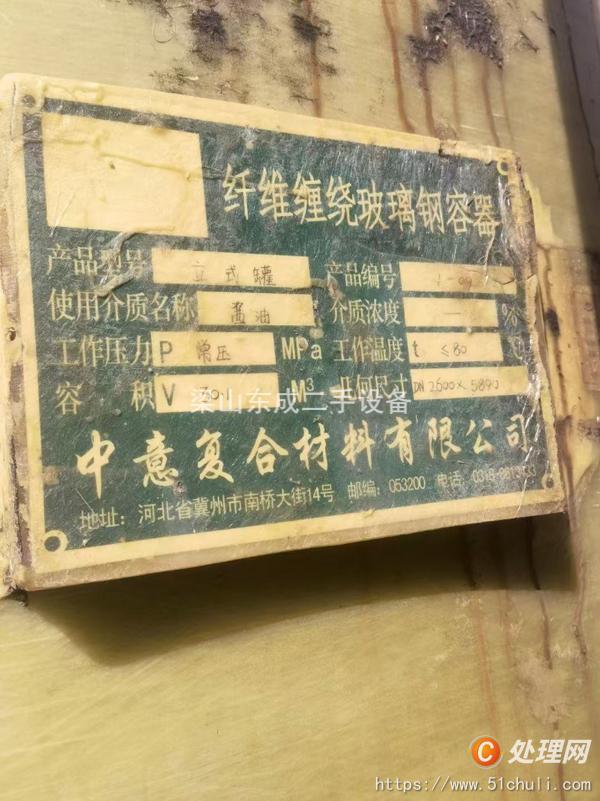 纤维缠绕玻璃钢容器
产品型号 立式罐 产品编号
使用介质名称 酱油 介质浓度 — %
工作压力 P 常压 MPa 工作温度 t ≤80 ℃
容 积 V 30 M³ 几何尺寸 DN2600×5890
梁山东成二手设备
中意复合材料有限公司
地址:河北省冀州市南桥大街14号 邮编:053200 电话:
C 处理网
https://www.51chuli.com/